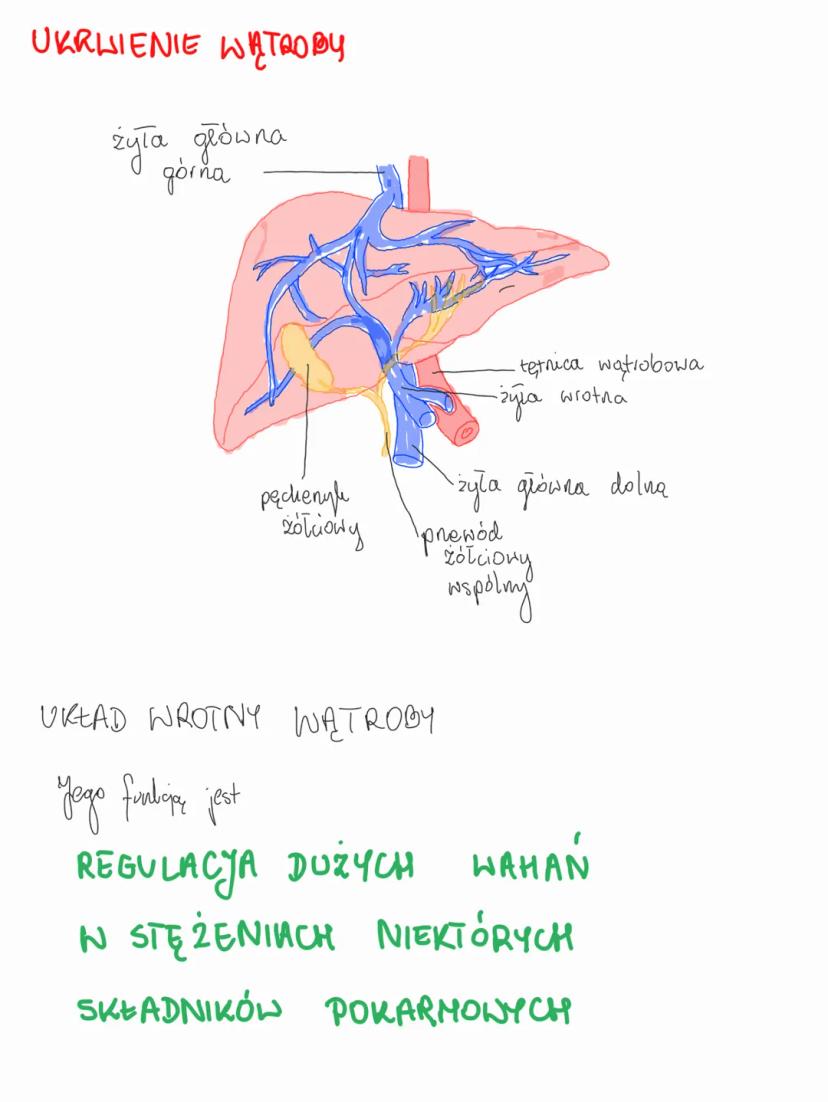 UKRWIENIE WĄTROBY
żyła główna
górna
tętnica wątrobowa
żyła wrotna
żyła główna dolna
pęcherzyk
żółciowy
przewód
żółciowy
wspólny
UKŁAD WROTNY WĄTROBY
Jego funkcją jest
REGULACJA DUŻYCH WAHAŃ
W STĘŻENIACH NIEKTÓRYCH
SKŁADNIKÓW POKARMOWYCH